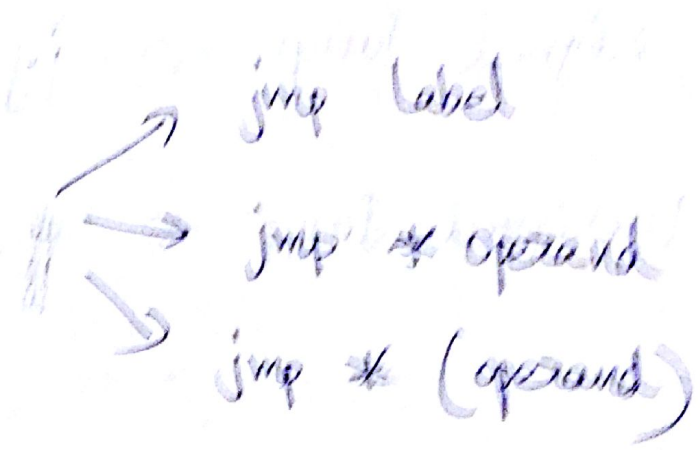 jmp label
jmp * operand
jmp * (operand)